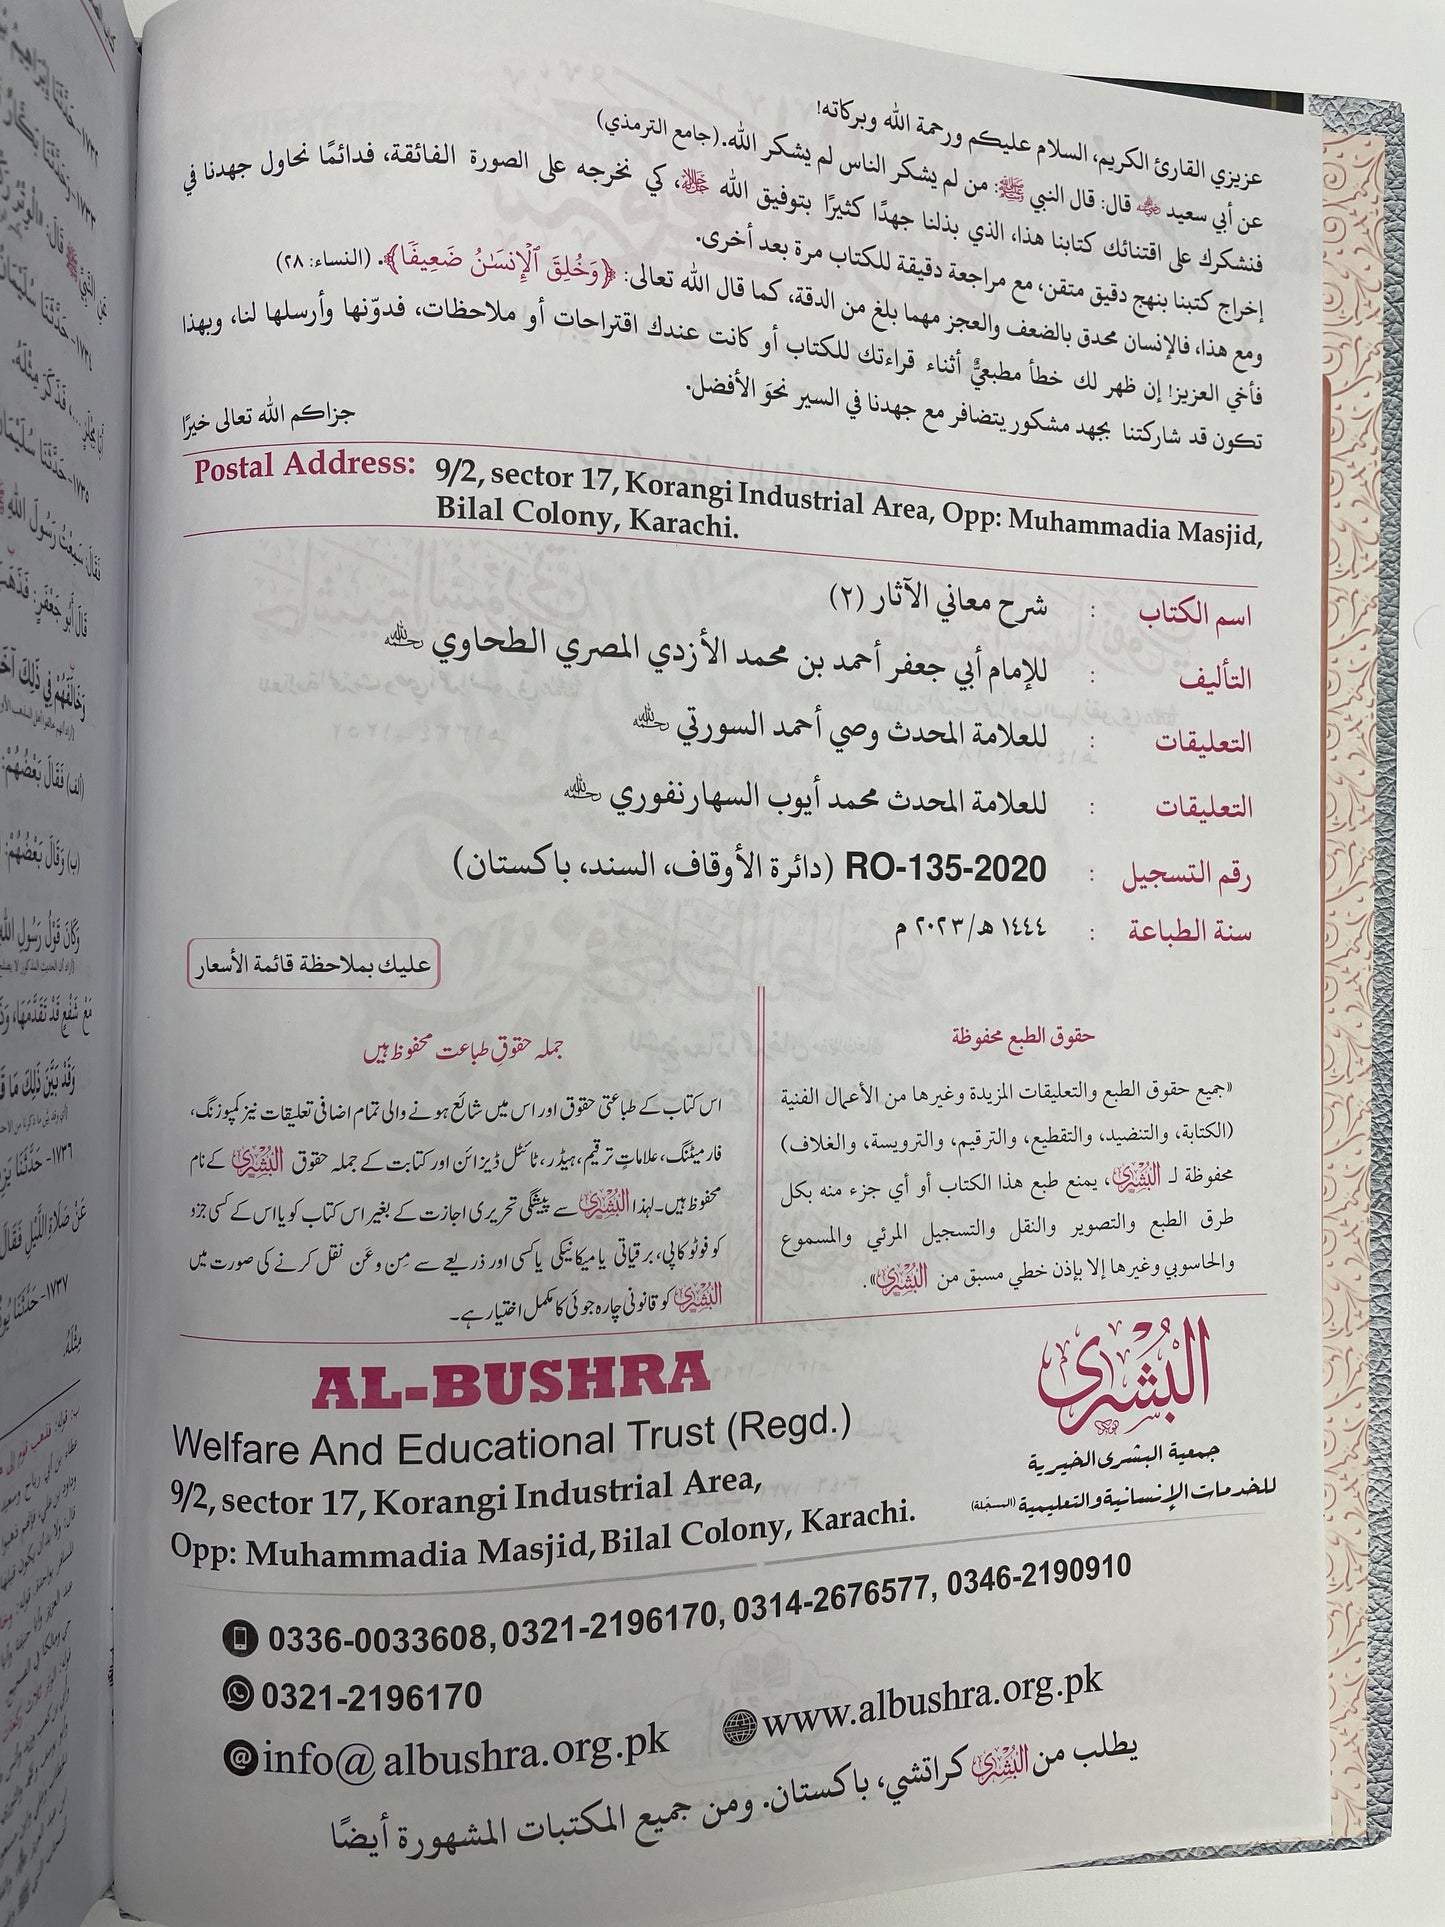 عزيزي القارئ الكريم، السلام عليكم ورحمة الله وبركاته!
عن أبي سعيد ﷺ قال: قال النبي ﷺ: من لم يشكر الناس لم يشكر الله. (جامع الترمذي)
فنشكرك على اقتنائك كتابنا هذا، الذي بذلنا جهدًا كثيرًا بتوفيق الله ﷻ، كي نخرجه على الصورة الفائقة، فدائمًا نحاول جهدنا في
إخراج كتبنا بنهج دقيق متقن، مع مراجعة دقيقة للكتاب مرة بعد أخرى.
ومع هذا، فالإنسان محدق بالضعف والعجز مهما بلغ من الدقة، كما قال الله تعالى: ﴿وَخُلِقَ ٱلْإِنسَٰنُ ضَعِيفًا﴾. (النساء: ٢٨)
فأخي العزيز! إن ظهر لك خطأ مطبعيٌّ أثناء قراءتك للكتاب أو كانت عندك اقتراحات أو ملاحظات، فدوّنها وأرسلها لنا، وبهذا
تكون قد شاركتنا بجهد مشكور يتضافر مع جهدنا في السير نحوَ الأفضل.
جزاكم الله تعالى خيرًا
Postal Address: 9/2, sector 17, Korangi Industrial Area, Opp: Muhammadia Masjid,
Bilal Colony, Karachi.
اسم الكتاب : شرح معاني الآثار (٢)
التأليف : للإمام أبي جعفر أحمد بن محمد الأزدي المصري الطحاوي رحمه الله
التعليقات : للعلامة المحدث وصي أحمد السورتي رحمه الله
التعليقات : للعلامة المحدث محمد أيوب السهارنفوري رحمه الله
رقم التسجيل : RO-135-2020 (دائرة الأوقاف، السند، باكستان)
سنة الطباعة : ١٤٤٤ هـ/٢٠٢٣ م
عليك بملاحظة قائمة الأسعار
حقوق الطبع محفوظة
«جميع حقوق الطبع والتعليقات المزيدة وغيرها من الأعمال الفنية
(الكتابة، والتنضيد، والتقطيع، والترقيم، والترويسة، والغلاف)
محفوظة لـ البُشْرى، يمنع طبع هذا الكتاب أو أي جزء منه بكل
طرق الطبع والتصوير والنقل والتسجيل المرئي والمسموع
والحاسوبي وغيرها إلا بإذن خطي مسبق من البُشْرى».
جملہ حقوقِ طباعت محفوظ ہیں
اس کتاب کے طباعتی حقوق اور اس میں شائع ہونے والی تمام اضافی تعلیقات نیز کمپوزنگ،
فارمیٹنگ، علاماتِ ترقیم، ہیڈر، ٹائٹل ڈیزائن اور کتابت کے جملہ حقوق البُشْرى کے نام
محفوظ ہیں۔ لہٰذا البُشْرى سے پیشگی تحریری اجازت کے بغیر اس کتاب کو یا اس کے کسی جزو
کو فوٹو کاپی، برقیاتی یا میکانیکی یا کسی اور ذریعے سے مِن وعَن نقل کرنے کی صورت میں
البُشْرى کو قانونی چارہ جوئی کا مکمل اختیار ہے۔
البُشْرى
جمعية البشرى الخيرية
للخدمات الإنسانية والتعليمية (المسجّلة)
AL-BUSHRA
Welfare And Educational Trust (Regd.)
9/2, sector 17, Korangi Industrial Area,
Opp: Muhammadia Masjid, Bilal Colony, Karachi.
0336-0033608, 0321-2196170, 0314-2676577, 0346-2190910
0321-2196170
info@albushra.org.pk www.albushra.org.pk
يطلب من البُشْرى كراتشي، باكستان. ومن جميع المكتبات المشهورة أيضًا